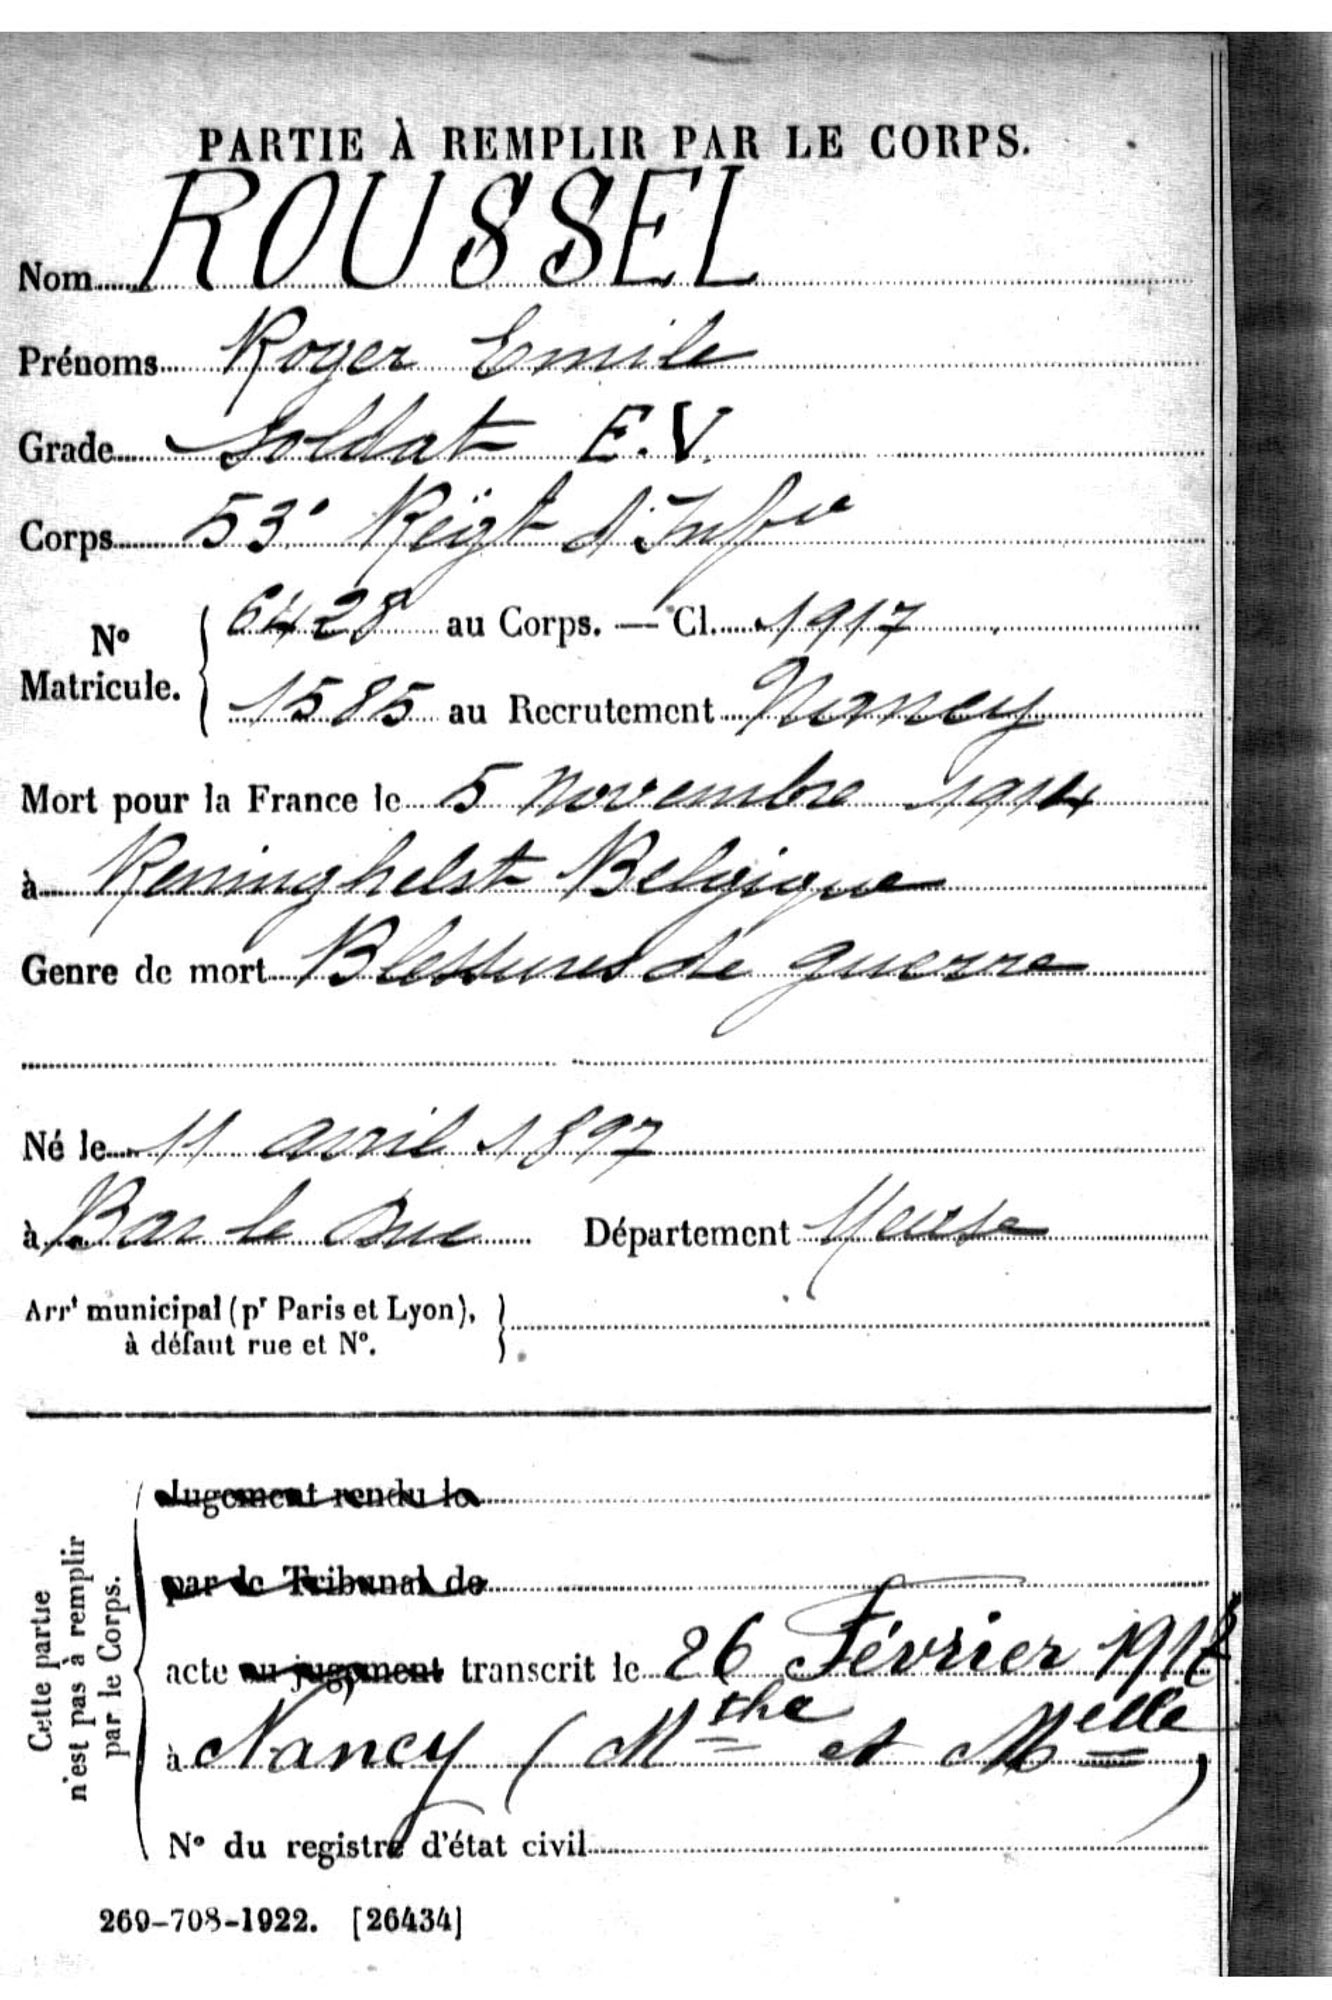 PARTIE À REMPLIR PAR LE CORPS.
Nom ROUSSEL
Prénoms Roger Emile
Grade Soldat E.V.
Corps 53e Régt d'Infie
N° Matricule. { 6428 au Corps. — Cl. 1917
1585 au Recrutement Nancy
Mort pour la France le 5 Novembre 1914
à Reninghelst Belgique
Genre de mort Blessures de guerre
Né le 11 avril 1897
à Bar le Duc Département Meuse
Arrt municipal (pr Paris et Lyon),
à défaut rue et N°.
Cette partie
n'est pas à remplir
par le Corps.
Jugement rendu le
par le Tribunal de
acte ou jugement transcrit le 26 Février
à Nancy (Mthe et Melle)
N° du registre d'état civil
269-708-1922. [26434]